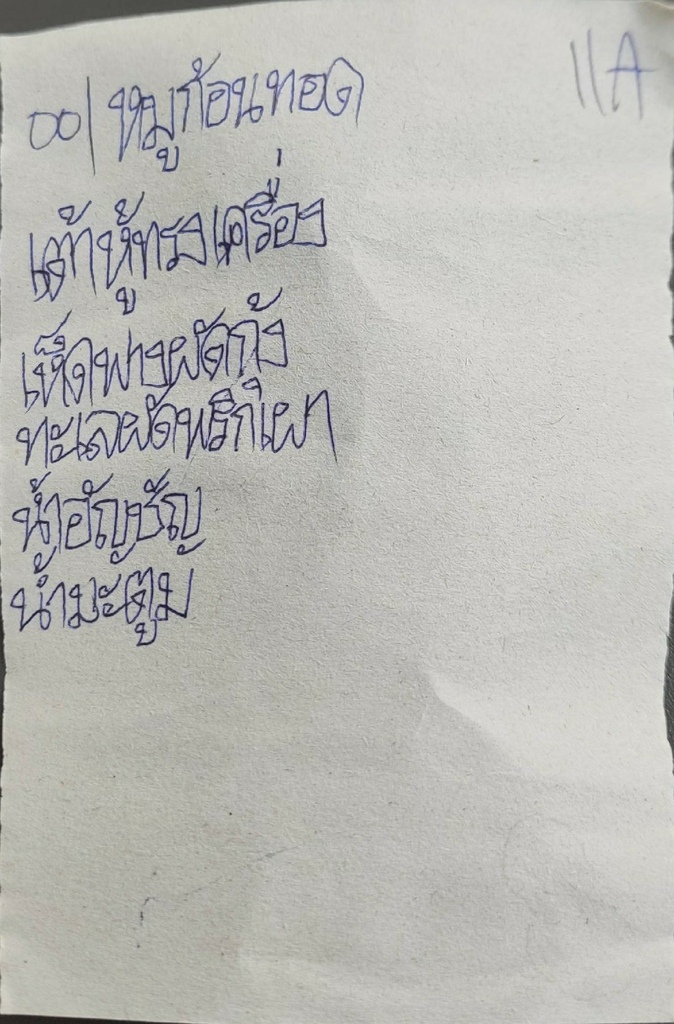 11A
001 หมูก้อนทอด
เต้าหู้ทรงเครื่อง
เห็ดฟางผัดกุ้ง
ทะเลผัดพริกเผา
น้ำอัญชัญ
น้ำมะตูม